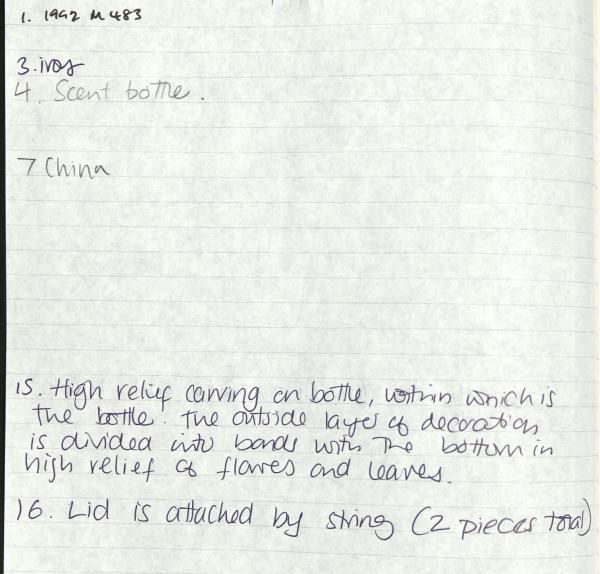 1. 1992 M 483
3. ivory
4. Scent bottle.
7 China
15. High relief carving on bottle, within which is
the bottle. The outside layer of decoration
is divided into bands with the bottom in
high relief of flowres and leaves.
16. Lid is attached by string (2 pieces total)